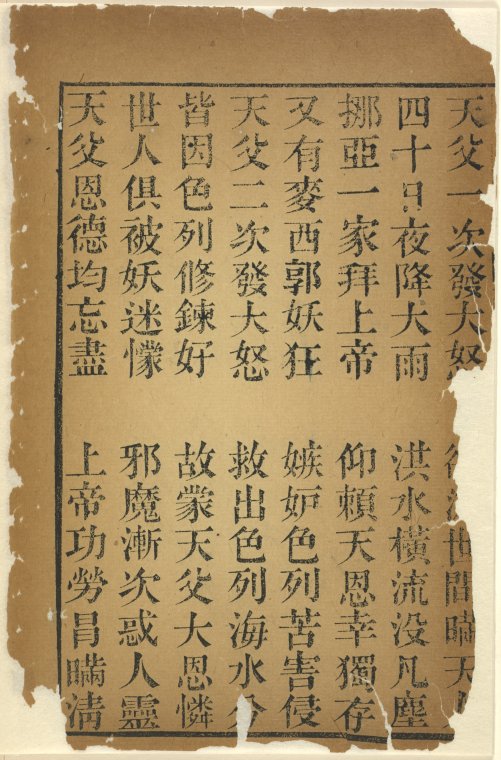 天父一次發大怒　世間瞞天
四十日夜降大雨　洪水橫流没凡塵
挪亞一家拜上帝　仰賴天恩幸獨存
又有麥西郭妖狂　嫉妒色列苦害侵
天父二次發大怒　救出色列海水分
皆因色列修鍊好　故蒙天父大恩憐
世人俱被妖迷懞　邪魔漸次惑人靈
天父恩德均忘盡　上帝功勞昌瞞淸